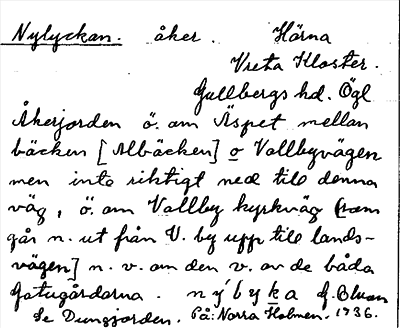 Nylyckan. åker. Härna
Vreta Kloster.
Gullbergs hd. Ögl
Åkerjorden ö. om Äspet mellan
bäcken [Albäcken] o Vallbyvägen
men inte riktigt ned till denna
väg, ö. om Vallby kyrkväg [som
går n. ut från V. by upp till lands-
vägen] n. v. om den v. av de båda
Gatugårdarna. nýbyka
Se Dungjorden. På: Norra Holmen. 1936.